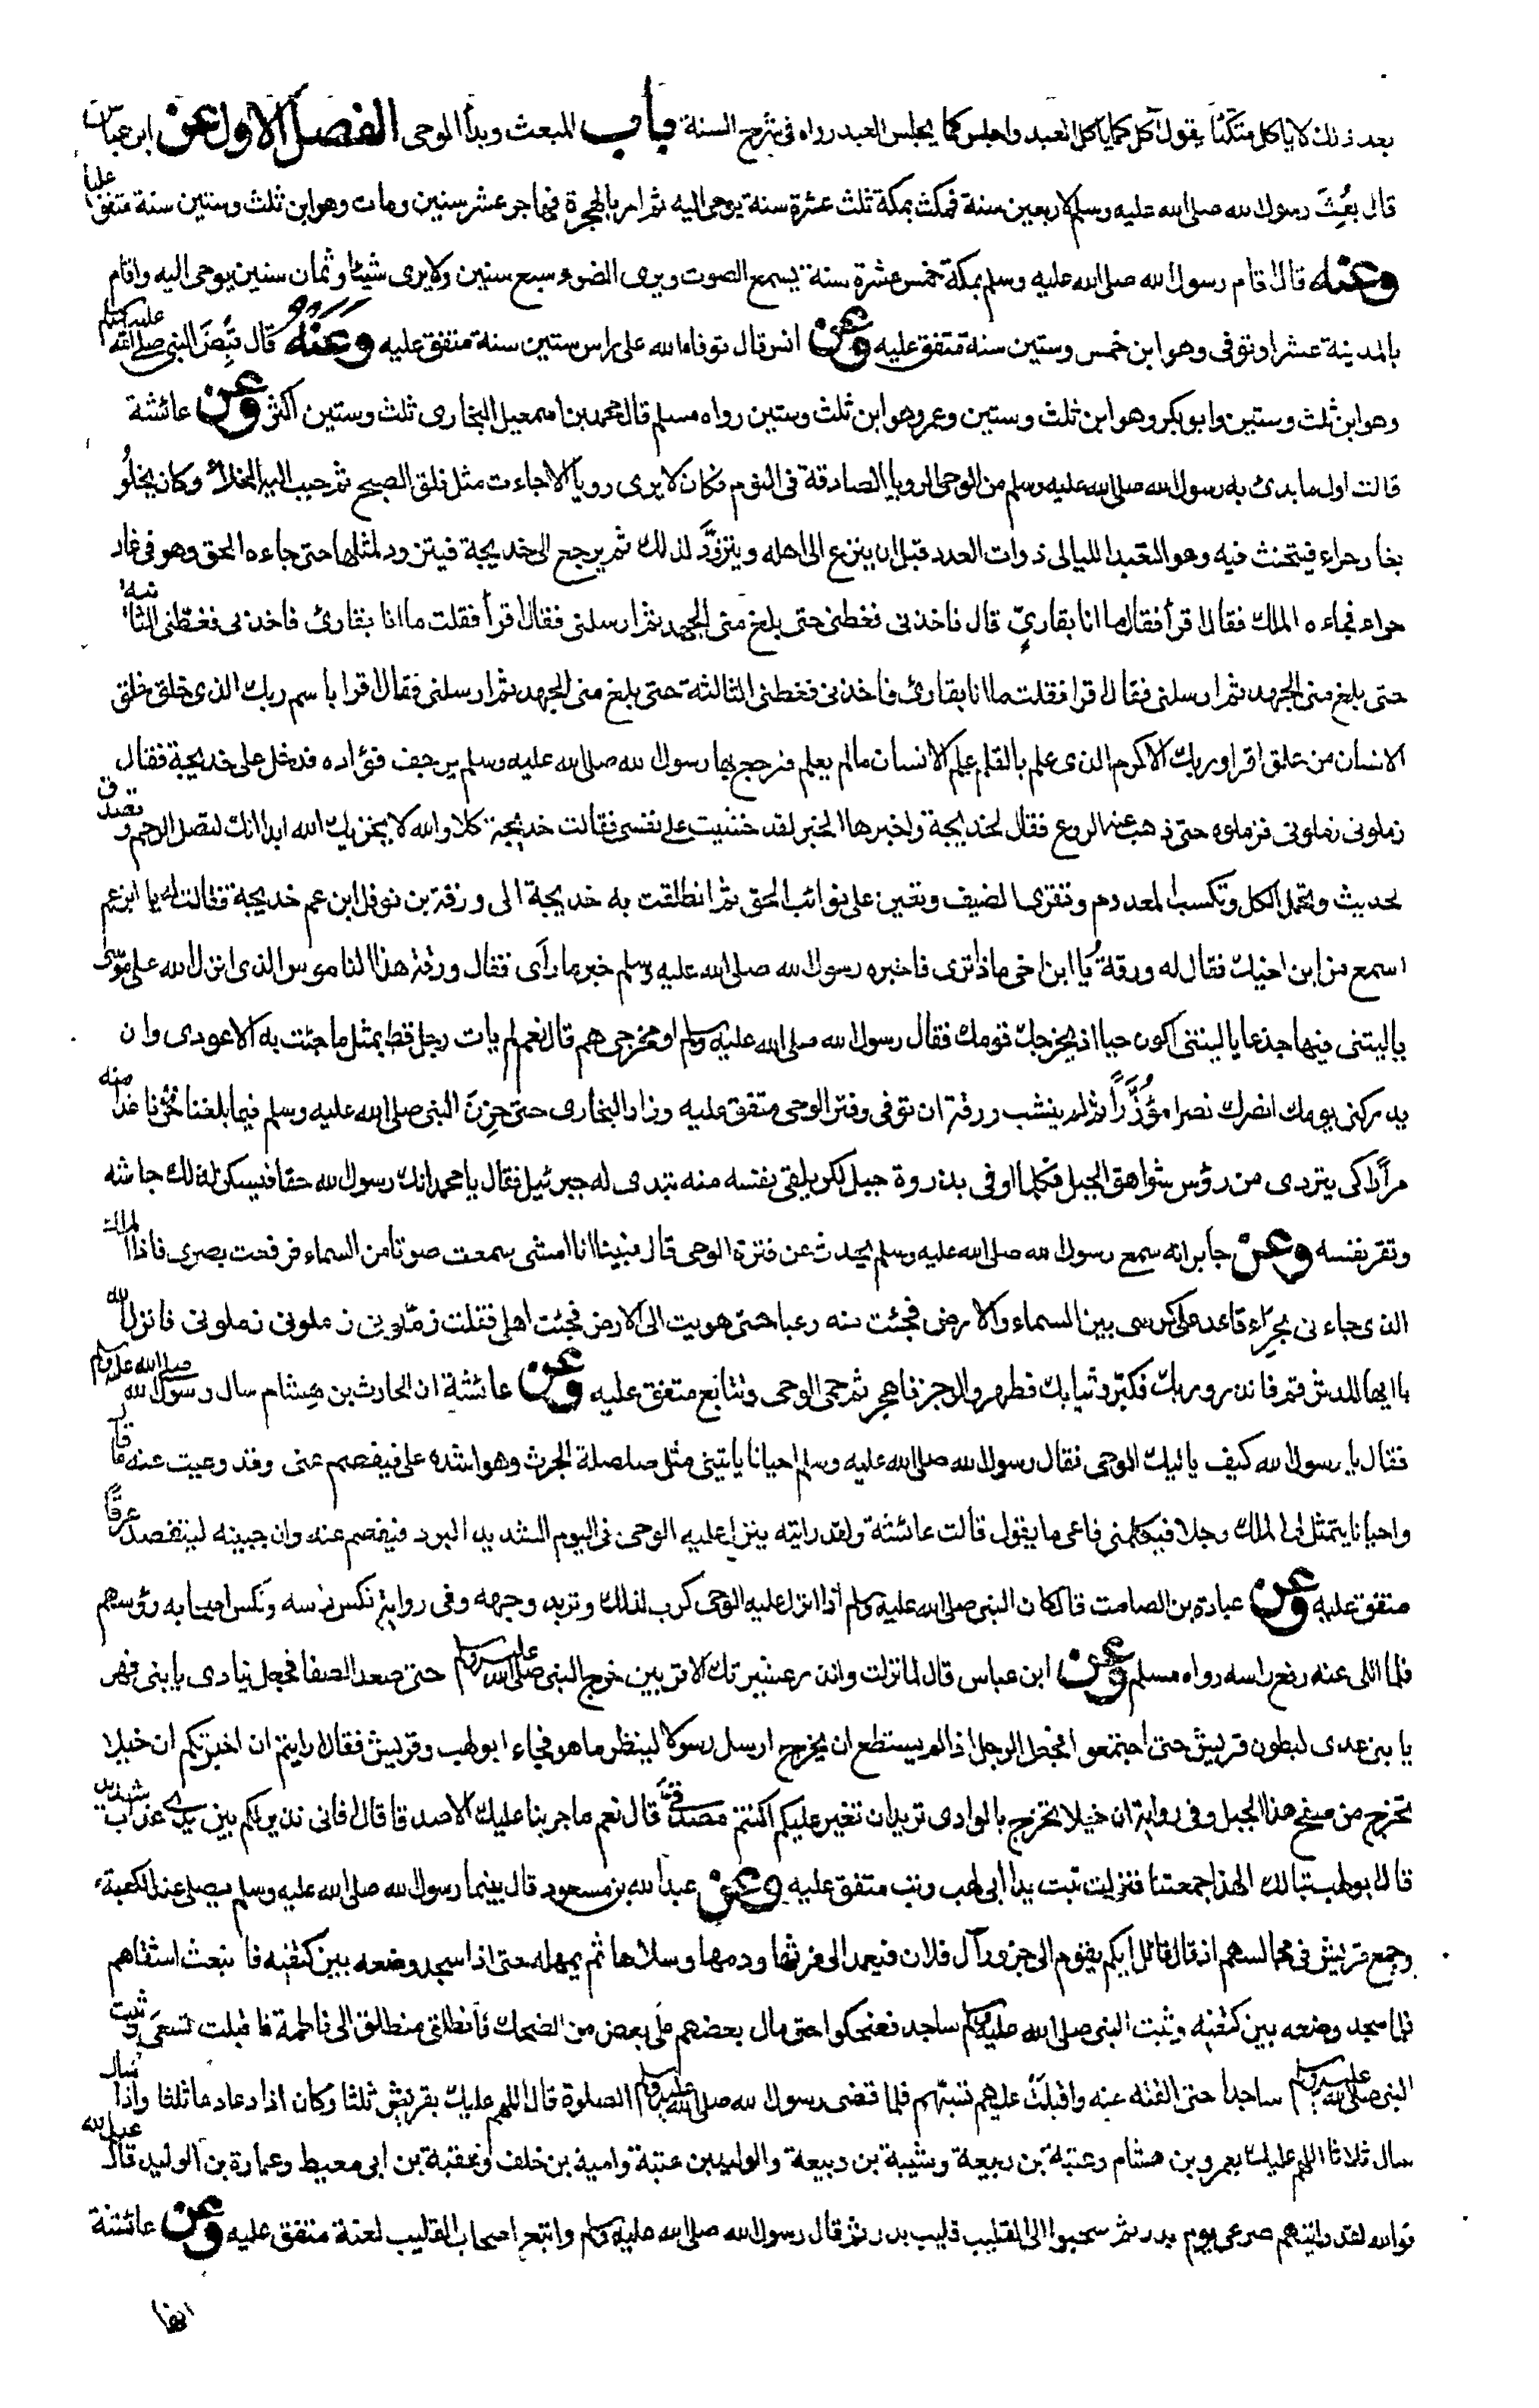 بعد ذلك لا ياكل متكئا يقول آكل كما ياكل العبد واجلس كما يجلس العبد رواه في شرح السنة باب المبعث وبدأ الوحى الفصل الاول عن ابن عباس
قال بُعِثَ رسول الله صلى الله عليه وسلم لاربعين سنة فمكث بمكة ثلث عشرة سنة يوحى اليه ثم امر بالهجرة فهاجر عشر سنين ومات وهو ابن ثلث وستين سنة متفق عليه
وعنه قال اقام رسول الله صلى الله عليه وسلم بمكة خمس عشرة سنة يسمع الصوت ويرى الضوء سبع سنين ولا يرى شيئا وثمان سنين يوحى اليه واقام
بالمدينة عشرا وتوفى وهو ابن خمس وستين سنة متفق عليه وعن انس قال توفاه الله على راس ستين سنة متفق عليه وَعَنْهُ قال قُبِضَ النبى صلى الله عليه وسلم
وهو ابن ثلث وستين وابو بكر وهو ابن ثلث وستين وعمر وهو ابن ثلث وستين رواه مسلم قال محمد بن اسمعيل البخارى ثلث وستين اكثر وعن عائشة
قالت اول ما بدئ به رسول الله صلى الله عليه وسلم من الوحى الرويا الصادقة فى النوم فكان لا يرى رويا الا جاءت مثل فلق الصبح ثم حبب اليه الخلاء وكان يخلُو
بغار حراء فيتحنث فيه وهو التعبد الليالى ذوات العدد قبل ان ينزع الى اهله ويتزوَّد لذلك ثم يرجع الى خديجة فيتزود لمثلها حتى جاءه الحق وهو فى غار
حراء فجاءه الملك فقال اقرأ فقال ما انا بقارئٍ قال فاخذنى فغطنى حتى بلغ منى الجهد ثم ارسلنى فقال اقرأ فقلت ما انا بقارئ فاخذنى فغطنى الثانية
حتى بلغ منى الجهد ثم ارسلنى فقال اقرا فقلت ما انا بقارئ فاخذنى فغطنى الثالثة حتى بلغ منى الجهد ثم ارسلنى فقال اقرا باسم ربك الذى خلق خلق
الانسان من علق اقرا وربك الاكرم الذى علم بالقلم علم الانسان مالم يعلم فرجع بها رسول الله صلى الله عليه وسلم يرجف فؤاده فدخل على خديجة فقال
زملونى زملونى فزملوه حتى ذهب عنه الروع فقال لخديجة واخبرها الخبر لقد خشيت على نفسى فقالت خديجة كلا والله لا يخزيك الله ابدا انك لتصل الرحم وتصدق
لحديث وتحمل الكل وتكسب المعدوم وتقرى الضيف وتعين على نوائب الحق ثم انطلقت به خديجة الى ورقة بن نوفل ابن عم خديجة فقالت له يا ابن عم
اسمع من ابن اخيك فقال له ورقة يَا ابن اخى ماذا ترى فاخبره رسول الله صلى الله عليه وسلم خبر ما رآى فقال ورقة هذا الناموس الذى انزل الله على موسى
يا ليتنى فيها جذعا يا ليتنى اكون حيا اذ يخرجك قومك فقال رسول الله صلى الله عليه وسلم او مخرجى هم قال نعم لم يات رجل قط بمثل ما جئت به الا عودى وان
يدركنى يومك انصرك نصرا مؤُزَّراً ثم لم ينشب ورقة ان توفى وفتر الوحى متفق عليه وزاد البخارى حتى حزِنَ النبى صلى الله عليه وسلم فيما بلغنا حُزْنا غدا منه
مراًرا كى يتردى من رؤس شواهق الجبل فكلما اوفى بذروة جبل لكى يلقى نفسه منه تبدى له جبرئيل فقال يا محمد انك رسول الله حقا فيسكن لذلك جاشه
وتقر نفسه وعن جابر انه سمع رسول الله صلى الله عليه وسلم يحدث عن فترة الوحى قال فبينا انا امشى سمعت صوتا من السماء فرفعت بصرى فاذا الملك
الذى جاءنى بحراء قاعد على كرسى بين السماء والارض فجئت منه رعبا حتى هويت الى الارض فجئت اهلى فقلت زمّلونى زملونى زملونى فانزل الله
يا ايها المدثر قم فانذر وربك فكبّر وثيابك فطهر والرجز فاهجر ثم حمى الوحى وتتابع متفق عليه وعن عائشة ان الحارث بن هشام سال رسول الله صلى الله عليه وسلم
فقال يا رسول الله كيف ياتيك الوحى فقال رسول الله صلى الله عليه وسلم احيانا ياتينى مثل صلصلة الجرس وهو اشده على فيفصم عنى وقد وعيت عنه ما قال
واحيانا يتمثل لى الملك رجلا فيكلمنى فاعى ما يقول قالت عائشة ولقد رايته ينزل عليه الوحى فى اليوم الشديد البرد فيفصم عنه وان جبينه ليتفصد عرقًا
متفق عليه وعن عبادة بن الصامت قال كان النبى صلى الله عليه وسلم اذا انزل عليه الوحى كرب لذلك وتربد وجهه وفى رواية نكس راسه ونكس اصحابه رؤسهم
فلما اتلى عنه رفع راسه رواه مسلم وعن ابن عباس قال لما نزلت وانذر عشيرتك الاقربين خرج النبى صلى الله عليه وسلم حتى صعد الصفا فجعل ينادى يا بنى فهر
يا بنى عدى لبطون قريش حتى اجتمعوا فجعل الرجل اذا لم يستطع ان يخرج ارسل رسولا لينظر ما هو فجاء ابو لهب وقريش فقال ارايتم ان اخبرتكم ان خيلا
تخرج من صفح هذا الجبل وفى رواية ان خيلا تخرج بالوادى تريد ان تغير عليكم اكنتم مصدقىَّ قال نعم ما جربنا عليك الا صدقا قال فانى نذير لكم بين يدى عذاب شديد
قال ابو لهب تبا لك الهذا جمعتنا فنزلت تبت يدا ابى لهب وتب متفق عليه وعن عبد الله بن مسعود قال بينما رسول الله صلى الله عليه وسلم يصلى عند الكعبة
وجمع قريش فى مجالسهم اذ قال قائل ايكم يقوم الى جزور آل فلان فيعمد الى فرثها ودمها وسلاها ثم يمهله حتى اذا سجد وضعه بين كتفيه فانبعث اشقاهم
فلما سجد وضعه بين كتفيه وثبت النبى صلى الله عليه وسلم ساجد فضحكوا حتى مال بعضهم على بعض من الضحك فانطلق منطلق الى فاطمة فاقبلت تسعى وثبت
النبى صلى الله عليه وسلم ساجدا حتى القته عنه واقبلت عليهم تسبهم فلما قضى رسول الله صلى الله عليه وسلم الصلوة قال اللهم عليك بقريش ثلثا وكان اذا دعا دعا ثلثا واذا سال
سال ثلاثا اللهم عليك بعمرو بن هشام وعتبة بن ربيعة وشيبة بن ربيعة والوليد بن عتبة وامية بن خلف وعقبة بن ابى معيط وعمارة بن الوليد قال عبد الله
فوالله لقد رايتهم صرعى يوم بدر ثم سحبوا الى القليب قليب بدر ثم قال رسول الله صلى الله عليه وسلم واتبع اصحاب القليب لعنة متفق عليه وعن عائشة
انها